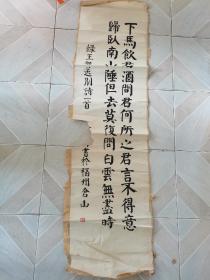 下馬飲君酒問君何所之君言不得意
歸臥南山陲但去莫復問白雲無盡時
錄王維送別詩一首
書於福州倉山